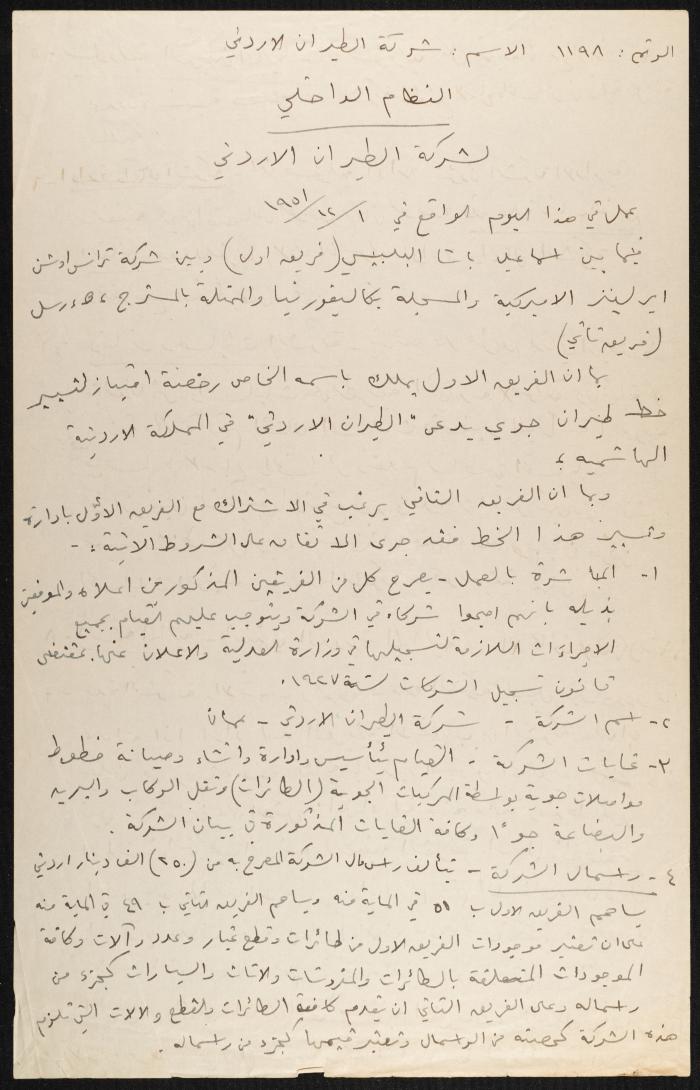 الرقم : ١١٩٨ الاسم : شركة الطيران الاردني
النظام الداخلي
لشركة الطيران الاردني
عمل في هذا اليوم الواقع في ١/ ١٢/ ١٩٥١
فيما بين اسماعيل باشا البلبيسي (فريق اول) وبين شركة ترانس اوشن
اير لينز الاميركية والمسجلة بكاليفورنيا والممثلة بالمستر ج ،
(فريق ثاني)
بما ان الفريق الاول يملك باسمه الخاص رخصة امتياز لتسيير
خط طيران جوي يدعى "الطيران الاردني" في المملكة الاردنية
الهاشميه ؛
وبما ان الفريق الثاني يرغب في الاشتراك مع الفريق الأول بادارة
وتسيير هذا الخط فقد جرى الاتفاق على الشروط الاتية : -
١- المباشرة بالعمل - يصرح كل من الفريقين المذكورين اعلاه والموقعين
بذيله بانهم اصبحوا شركاء في الشركة ويتوجب عليهم القيام بجميع
الاجراءات اللازمة لتسجيلها في وزارة العدلية والاعلان عنها بمقتضى
قانون تسجيل الشركات لسنة ١٩٢٧.
٢- اسم الشركة - شركة الطيران الاردني - عمان
٣- غايات الشركة - القيام بتأسيس وادارة وانشاء وصيانة خطوط
مواصلات جوية بواسطة المركبات الجوية (الطائرات) ونقل الركاب والبريد
والبضاعة جوًا وكافة الغايات المذكورة في بيان الشركة .
٤- رأسمال الشركة - يتألف راس مال الشركة المصرح به من (٢٥٠) الف دينار اردني
يساهم الفريق الاول ب ٥١ في الماية منه ويساهم الفريق الثاني ب ٤٩ في الماية منه
على ان تعتبر موجودات الفريق الاول من طائرات وقطع غيار وعدد وآلات وكافة
الموجودات المتعلقة بالطائرات والمفروشات والاثاث والسيارات كجزء من
راسماله وعلى الفريق الثاني ان يقدم كافة الطائرات والقطع والالات التي تلزم
هذه الشركة كحصته من الراسمال وتعتبر قيمتها كجزء من راسماله .